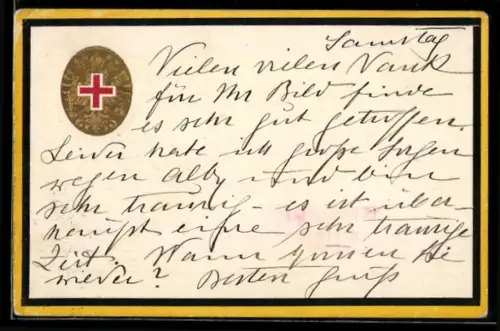 Samstag
Vielen vielen Dank
für Ihr Bild finde
es sehr gut getroffen.
Leider habe ich große Sorgen
wegen Alby und bin
sehr traurig – es ist über-
haupt eine sehr traurige
Zeit. Wann kommen Sie
wieder? Besten Gruß